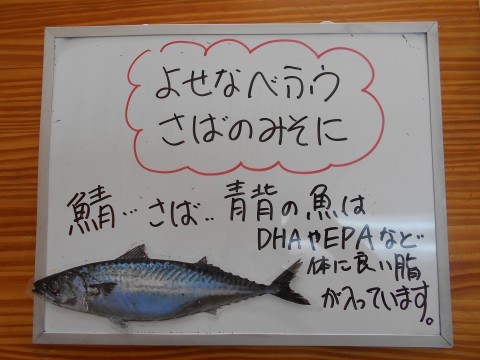 よせなべふう
さばのみそに
鯖…さば‥青背の魚は
DHAやEPAなど
体に良い脂
が入っています。